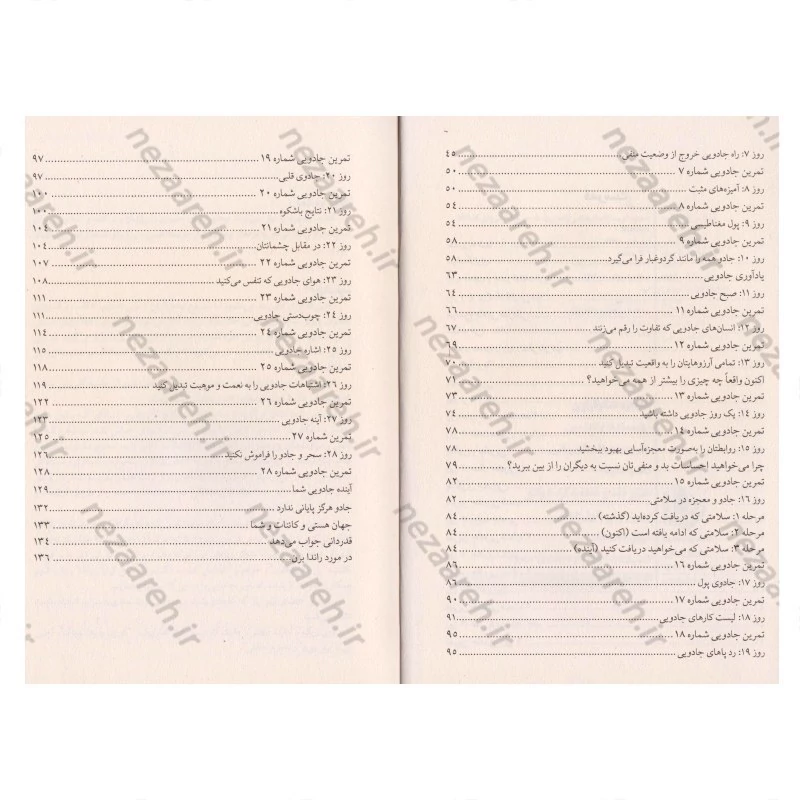 روز ۷: راه جادویی خروج از وضعیت منفی ... ۴۵
تمرین جادویی شماره ۷ ... ۵۰
روز ۸: آمیزه‌های مثبت ... ۵۰
تمرین جادویی شماره ۸ ... ۵۴
روز ۹: پول مغناطیسی ... ۵۴
تمرین جادویی شماره ۹ ... ۵۸
روز ۱۰: جادو همه را مانند گردوغبار فرا می‌گیرد ... ۵۸
یادآوری جادویی ... ۶۳
روز ۱۱: صبح جادویی ... ۶۴
تمرین جادویی شماره ۱۱ ... ۶۶
روز ۱۲: انسان‌های جادویی که تفاوت را رقم می‌زنند ... ۶۷
تمرین جادویی شماره ۱۲ ... ۶۹
روز ۱۳: تمامی آرزوهایتان را به واقعیت تبدیل کنید ... ۷۰
اکنون واقعاً چه چیزی را بیشتر از همه می‌خواهید؟ ... ۷۱
تمرین جادویی شماره ۱۳ ... ۷۳
روز ۱۴: یک روز جادویی داشته باشید ... ۷۴
تمرین جادویی شماره ۱۴ ... ۷۸
روز ۱۵: روابطتان را به‌صورت معجزه‌آسایی بهبود ببخشید ... ۷۸
چرا می‌خواهید احساسات بد و منفی‌تان نسبت به دیگران را از بین ببرید؟ ... ۷۹
تمرین جادویی شماره ۱۵ ... ۸۲
روز ۱۶: جادو و معجزه در سلامتی ... ۸۲
مرحله ۱: سلامتی که دریافت کرده‌اید (گذشته) ... ۸۴
مرحله ۲: سلامتی که ادامه یافته است (اکنون) ... ۸۴
مرحله ۳: سلامتی که می‌خواهید دریافت کنید (آینده) ... ۸۴
تمرین جادویی شماره ۱۶ ... ۸۶
روز ۱۷: جادوی پول ... ۸۶
تمرین جادویی شماره ۱۷ ... ۹۰
روز ۱۸: لیست کارهای جادویی ... ۹۱
تمرین جادویی شماره ۱۸ ... ۹۵
روز ۱۹: رد پاهای جادویی ... ۹۵
تمرین جادویی شماره ۱۹ ... ۹۷
روز ۲۰: جادوی قلبی ... ۹۷
تمرین جادویی شماره ۲۰ ... ۱۰۰
روز ۲۱: نتایج باشکوه ... ۱۰۰
تمرین جادویی شماره ۲۱ ... ۱۰۴
روز ۲۲: در مقابل چشمانتان ... ۱۰۴
تمرین جادویی شماره ۲۲ ... ۱۰۷
روز ۲۳: هوای جادویی که تنفس می‌کنید ... ۱۰۸
تمرین جادویی شماره ۲۳ ... ۱۱۱
روز ۲۴: چوب‌دستی جادویی ... ۱۱۱
تمرین جادویی شماره ۲۴ ... ۱۱۴
روز ۲۵: اشاره جادویی ... ۱۱۵
تمرین جادویی شماره ۲۵ ... ۱۱۸
روز ۲۶: اشتباهات جادویی را به نعمت و موهبت تبدیل کنید ... ۱۱۹
تمرین جادویی شماره ۲۶ ... ۱۲۲
روز ۲۷: آینه جادویی ... ۱۲۳
تمرین شماره ۲۷ ... ۱۲۵
روز ۲۸: سحر و جادو را فراموش نکنید ... ۱۲۶
تمرین جادویی شماره ۲۸ ... ۱۲۸
آینده جادویی شما ... ۱۲۹
جادو هرگز پایانی ندارد ... ۱۳۲
جهان هستی و کائنات و شما ... ۱۳۳
قدردانی جواب می‌دهد ... ۱۳۴
در مورد راندا برن ... ۱۳۶
nezaareh.ir